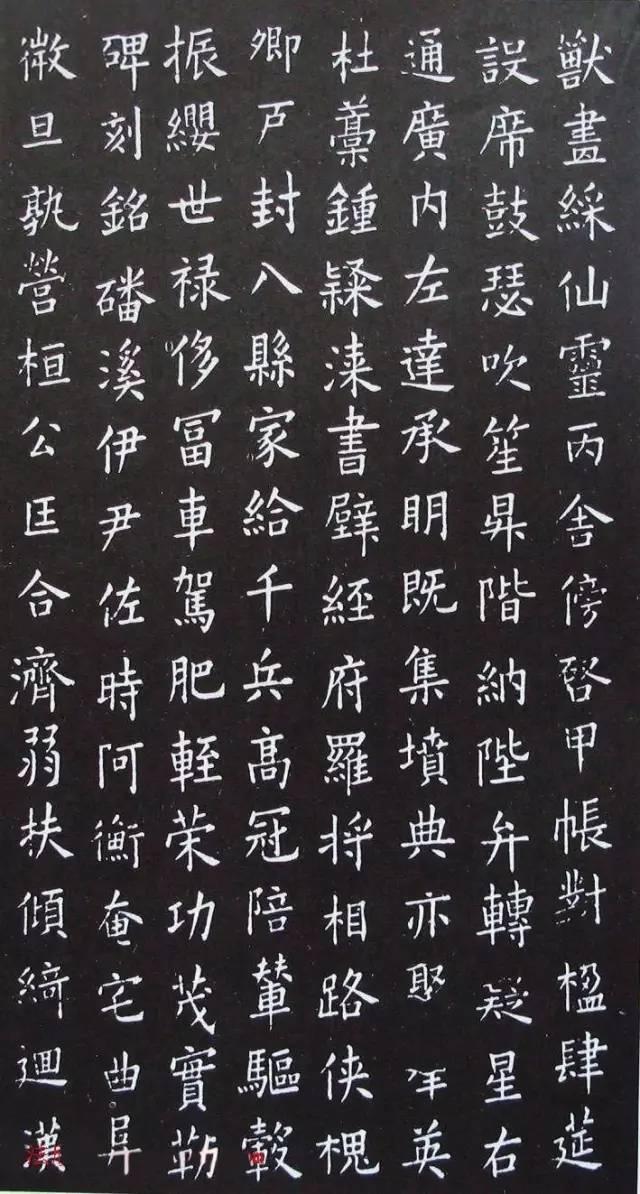 獸畫綵仙靈丙舍傍啓甲帳對楹肆莚
設席鼓瑟吹笙昇階納陛弁轉疑星右
通廣内左達承明既集墳典亦聚英
杜藁鍾隸漆書壁經府羅将相路侠槐
卿户封八縣家給千兵高冠陪輦驅轂
振纓世禄侈冨車駕肥輕荣功茂實勒
碑刻銘磻溪伊尹佐時阿衡奄宅曲阜
微旦孰營桓公匡合濟弱扶傾綺廻漢